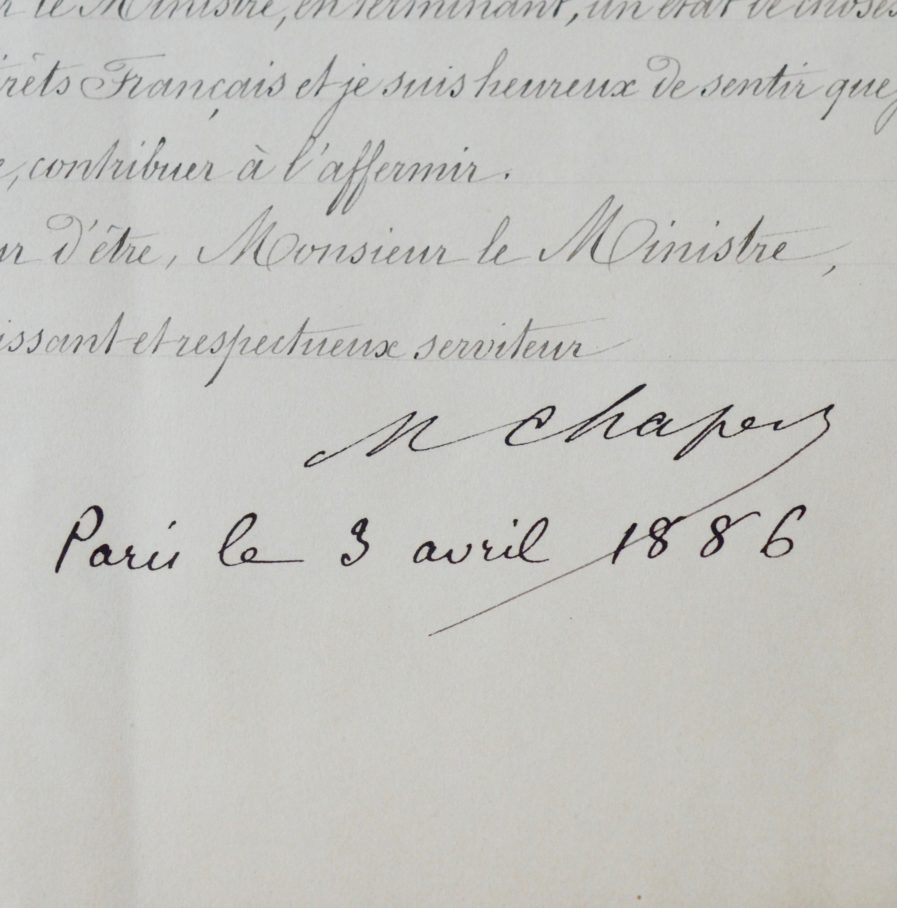 r le Ministre, en terminant, un état de choses
rêts Français et je suis heureux de sentir que j
e, contribuer à l'affermir.
ur d'être, Monsieur le Ministre,
issant et respectueux serviteur
M Chaper
Paris le 3 avril 1886